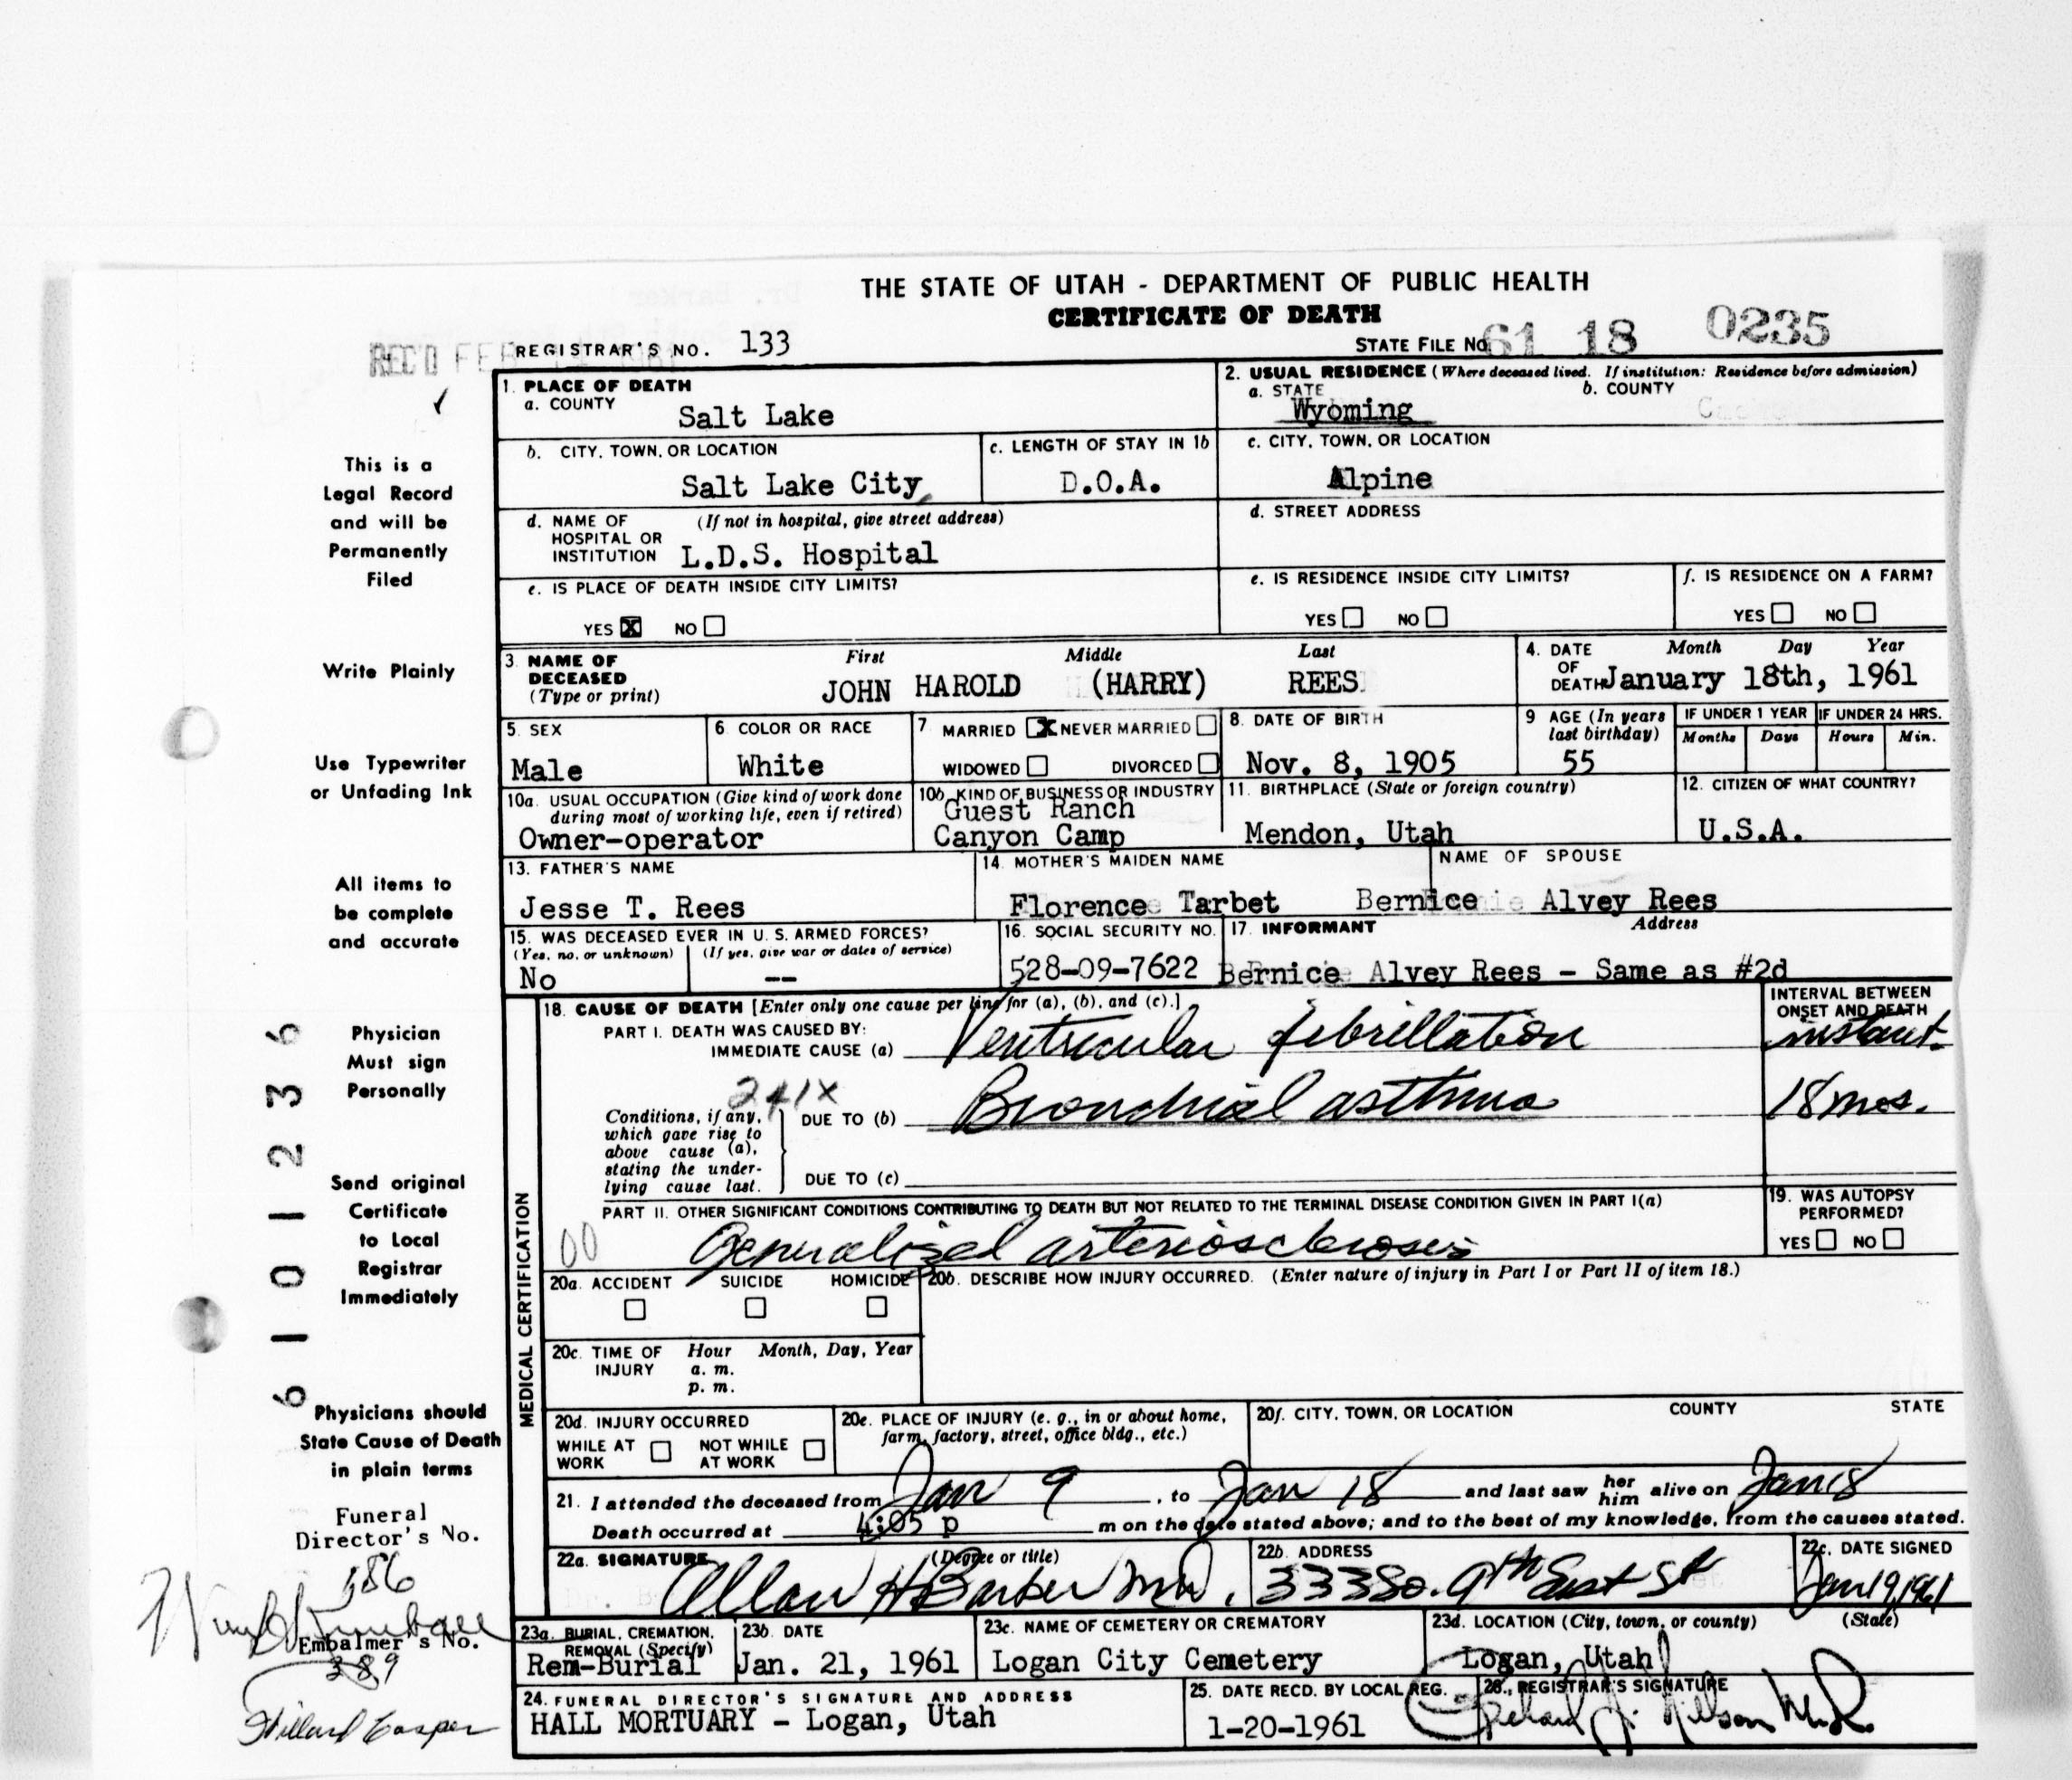 THE STATE OF UTAH - DEPARTMENT OF PUBLIC HEALTH
CERTIFICATE OF DEATH
REC'D FEB
REGISTRAR'S NO. 133
STATE FILE NO. 61 18 0235
1. PLACE OF DEATH
a. COUNTY
Salt Lake
2. USUAL RESIDENCE (Where deceased lived. If institution: Residence before admission)
a. STATE b. COUNTY
Wyoming
b. CITY, TOWN, OR LOCATION
Salt Lake City
c. LENGTH OF STAY IN 1b
D.O.A.
c. CITY, TOWN, OR LOCATION
Alpine
d. NAME OF HOSPITAL OR INSTITUTION (If not in hospital, give street address)
L.D.S. Hospital
d. STREET ADDRESS
e. IS PLACE OF DEATH INSIDE CITY LIMITS?
YES X NO
e. IS RESIDENCE INSIDE CITY LIMITS?
YES NO
f. IS RESIDENCE ON A FARM?
YES NO
3. NAME OF DECEASED (Type or print)
First Middle Last
JOHN HAROLD (HARRY) REES
4. DATE OF DEATH Month Day Year
January 18th, 1961
5. SEX
Male
6. COLOR OR RACE
White
7. MARRIED X NEVER MARRIED
WIDOWED DIVORCED
8. DATE OF BIRTH
Nov. 8, 1905
9 AGE (In years last birthday)
55
IF UNDER 1 YEAR
Months Days
IF UNDER 24 HRS.
Hours Min.
10a. USUAL OCCUPATION (Give kind of work done during most of working life, even if retired)
Owner-operator
10b. KIND OF BUSINESS OR INDUSTRY
Guest Ranch
Canyon Camp
11. BIRTHPLACE (State or foreign country)
Mendon, Utah
12. CITIZEN OF WHAT COUNTRY?
U.S.A.
13. FATHER'S NAME
Jesse T. Rees
14. MOTHER'S MAIDEN NAME
Florence Tarbet
NAME OF SPOUSE
Bernice Alvey Rees
15. WAS DECEASED EVER IN U. S. ARMED FORCES?
(Yes, no, or unknown) (If yes, give war or dates of service)
No --
16. SOCIAL SECURITY NO.
528-09-7622
17. INFORMANT Address
Bernice Alvey Rees - Same as #2d
18. CAUSE OF DEATH [Enter only one cause per line for (a), (b), and (c).]
PART I. DEATH WAS CAUSED BY:
IMMEDIATE CAUSE (a) Ventricular fibrillation
INTERVAL BETWEEN ONSET AND DEATH
instant.
241X
Conditions, if any, which gave rise to above cause (a), stating the underlying cause last.
DUE TO (b) Bronchial asthma
18 mos.
DUE TO (c)
PART II. OTHER SIGNIFICANT CONDITIONS CONTRIBUTING TO DEATH BUT NOT RELATED TO THE TERMINAL DISEASE CONDITION GIVEN IN PART I(a)
00 Generalized arteriosclerosis
19. WAS AUTOPSY PERFORMED?
YES NO
20a. ACCIDENT SUICIDE HOMICIDE
20b. DESCRIBE HOW INJURY OCCURRED. (Enter nature of injury in Part I or Part II of item 18.)
20c. TIME OF INJURY Hour Month, Day, Year
a. m.
p. m.
20d. INJURY OCCURRED
WHILE AT WORK NOT WHILE AT WORK
20e. PLACE OF INJURY (e. g., in or about home, farm, factory, street, office bldg., etc.)
20f. CITY, TOWN, OR LOCATION COUNTY STATE
21. I attended the deceased from Jan 9, to Jan 18 and last saw her him alive on Jan 18
Death occurred at 4:05 p m on the date stated above; and to the best of my knowledge, from the causes stated.
22a. SIGNATURE (Degree or title)
Allan H Barker MD.
22b. ADDRESS
333 So. 9th East St
22c. DATE SIGNED
Jan 19, 1961
23a. BURIAL, CREMATION, REMOVAL (Specify)
Rem-Burial
23b. DATE
Jan. 21, 1961
23c. NAME OF CEMETERY OR CREMATORY
Logan City Cemetery
23d. LOCATION (City, town, or county) (State)
Logan, Utah
24. FUNERAL DIRECTOR'S SIGNATURE AND ADDRESS
HALL MORTUARY - Logan, Utah
25. DATE RECD. BY LOCAL REG.
1-20-1961
26. REGISTRAR'S SIGNATURE
MEDICAL CERTIFICATION
This is a
Legal Record
and will be
Permanently
Filed
Write Plainly
Use Typewriter
or Unfading Ink
All items to
be complete
and accurate
Physician
Must sign
Personally
Send original
Certificate
to Local
Registrar
Immediately
Physicians should
State Cause of Death
in plain terms
Funeral
Director's No.
186
Embalmer's No.
389
Willard Casper
6 1 0 1 2 3 6